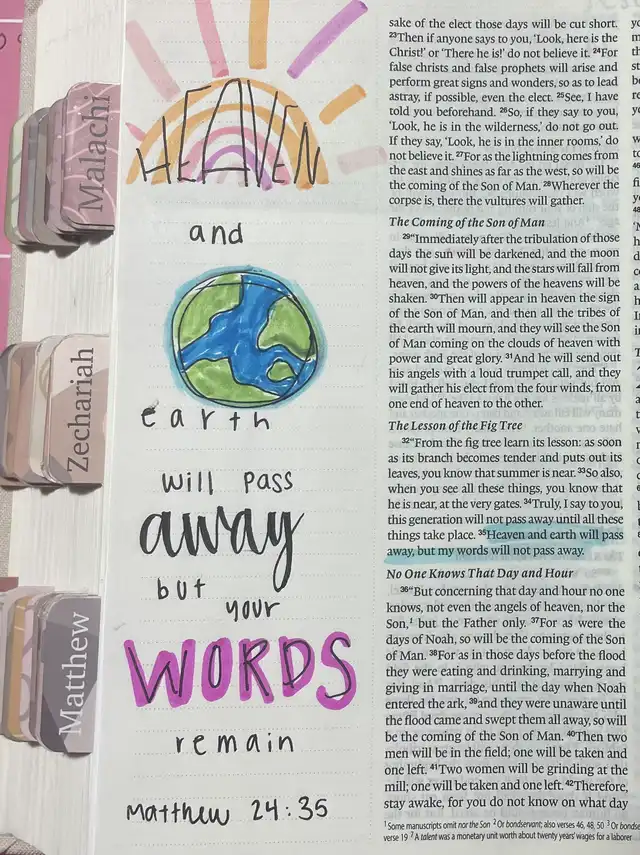 Malachi
Zechariah
Matthew
HEAVEN
and
earth
will pass
away
but
your
WORDS
remain
Matthew 24:35
sake of the elect those days will be cut short.
23Then if anyone says to you, ‘Look, here is the
Christ!’ or ‘There he is!’ do not believe it. 24For
false christs and false prophets will arise and
perform great signs and wonders, so as to lead
astray, if possible, even the elect. 25See, I have
told you beforehand. 26So, if they say to you,
‘Look, he is in the wilderness,’ do not go out.
If they say, ‘Look, he is in the inner rooms,’ do
not believe it. 27For as the lightning comes from
the east and shines as far as the west, so will be
the coming of the Son of Man. 28Wherever the
corpse is, there the vultures will gather.
The Coming of the Son of Man
29“Immediately after the tribulation of those
days the sun will be darkened, and the moon
will not give its light, and the stars will fall from
heaven, and the powers of the heavens will be
shaken. 30Then will appear in heaven the sign
of the Son of Man, and then all the tribes of
the earth will mourn, and they will see the Son
of Man coming on the clouds of heaven with
power and great glory. 31And he will send out
his angels with a loud trumpet call, and they
will gather his elect from the four winds, from
one end of heaven to the other.
The Lesson of the Fig Tree
32“From the fig tree learn its lesson: as soon
as its branch becomes tender and puts out its
leaves, you know that summer is near. 33So also,
when you see all these things, you know that
he is near, at the very gates. 34Truly, I say to you,
this generation will not pass away until all these
things take place. 35Heaven and earth will pass
away, but my words will not pass away.
No One Knows That Day and Hour
36“But concerning that day and hour no one
knows, not even the angels of heaven, nor the
Son,1 but the Father only. 37For as were the
days of Noah, so will be the coming of the Son
of Man. 38For as in those days before the flood
they were eating and drinking, marrying and
giving in marriage, until the day when Noah
entered the ark, 39and they were unaware until
the flood came and swept them all away, so will
be the coming of the Son of Man. 40Then two
men will be in the field; one will be taken and
one left. 41Two women will be grinding at the
mill; one will be taken and one left. 42Therefore,
stay awake, for you do not know on what day
1 Some manuscripts omit nor the Son 2 Or bondservant; also verses 46, 48, 50 3 Or
verse 19 7 A talent was a monetary unit worth about twenty years’ wages for a laborer